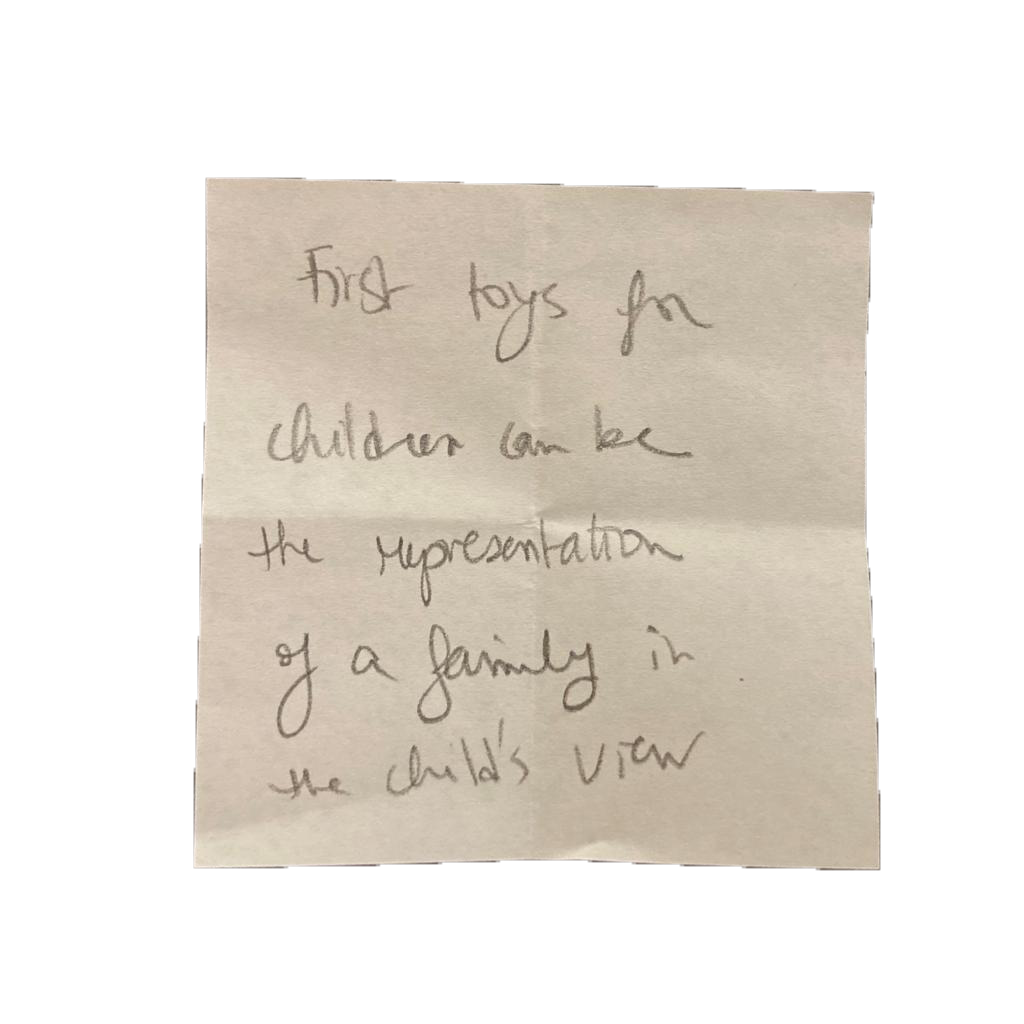 First toys for
children can be
the representation
of a family in
the child's view